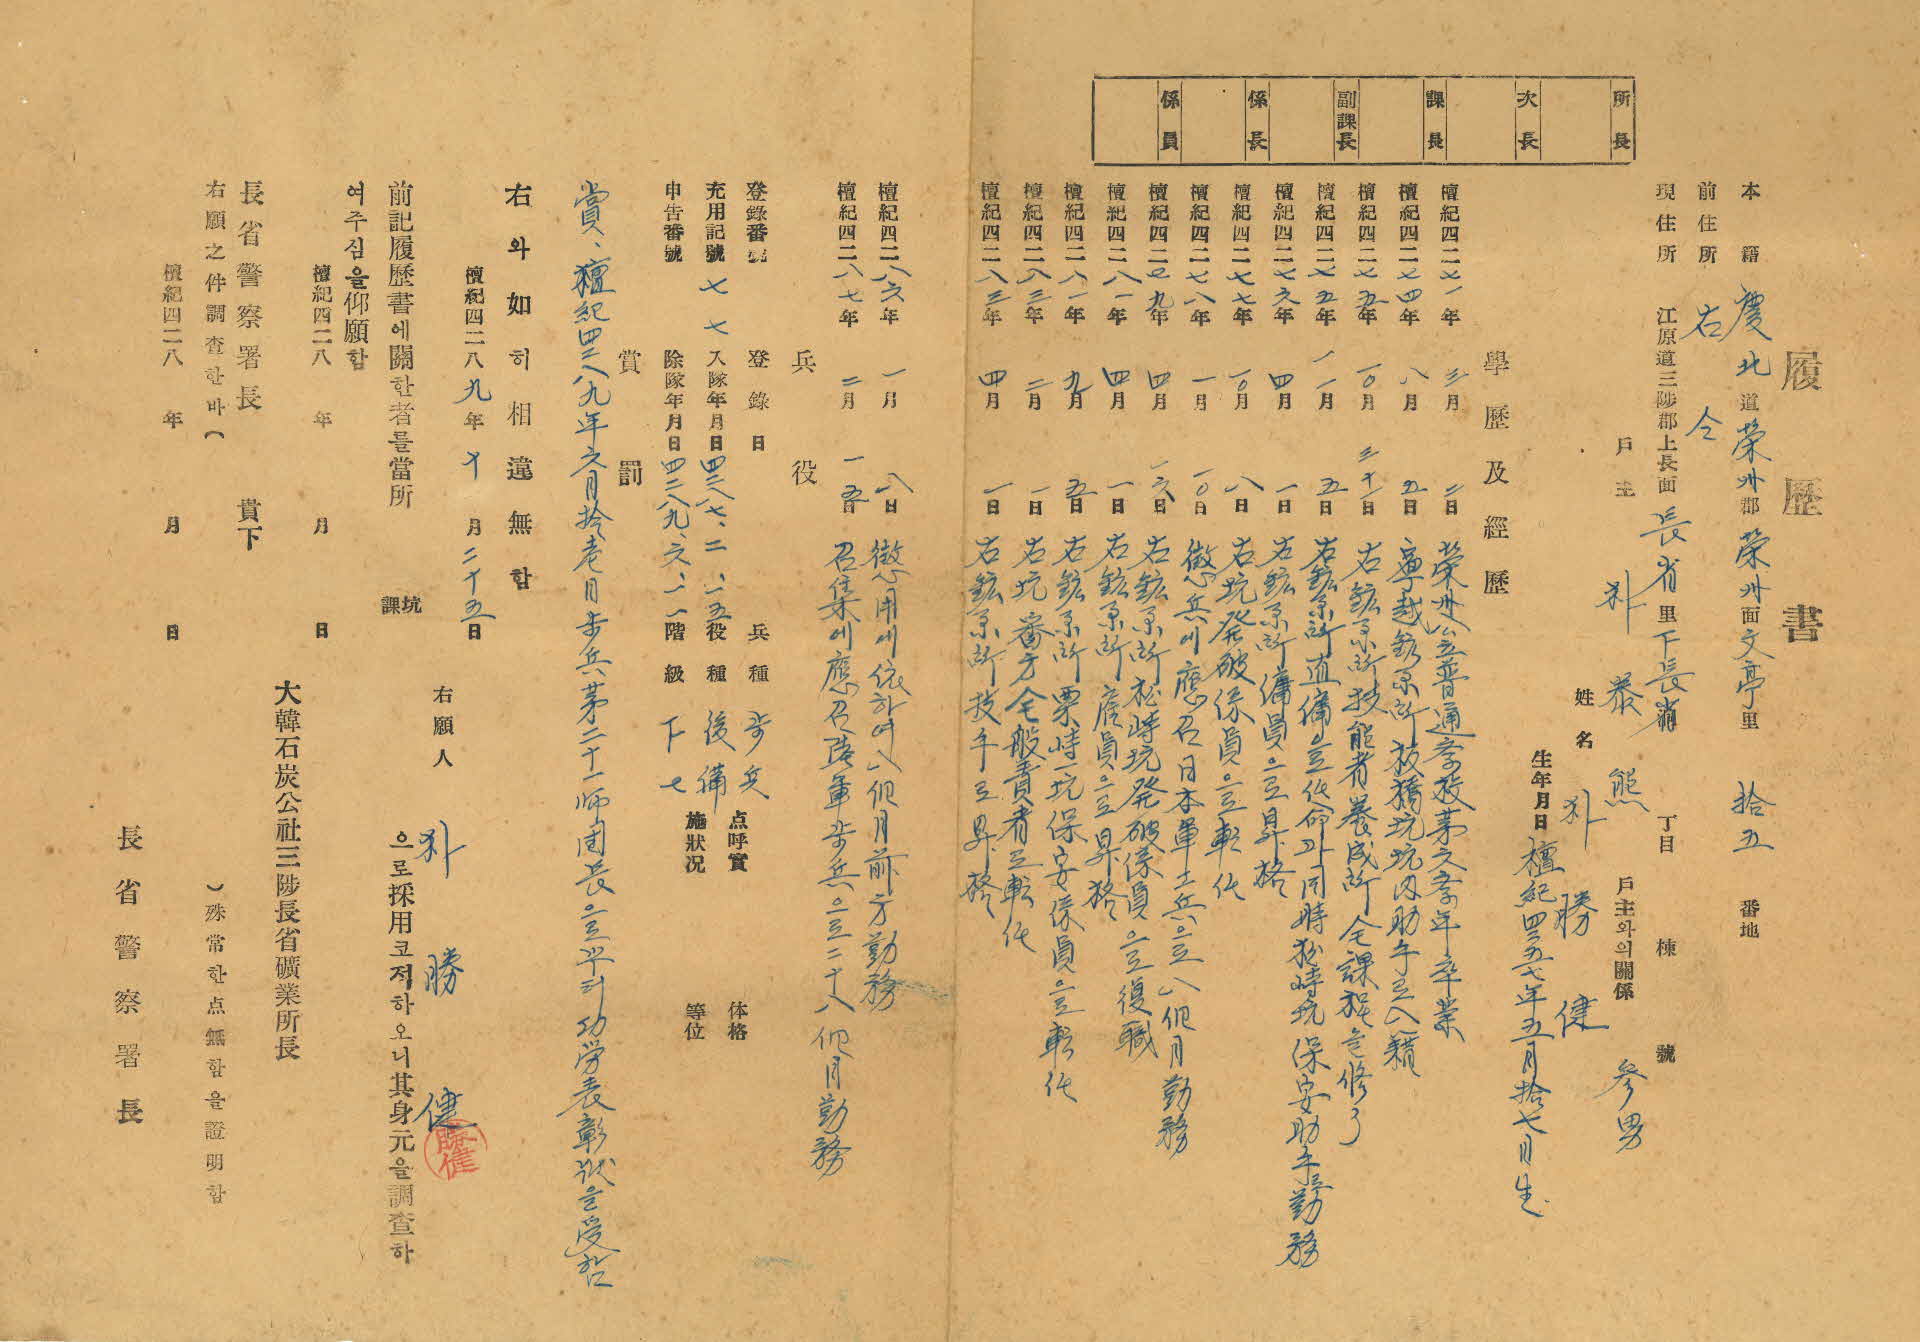 履歷書
本籍 慶北道榮州郡榮州面文亭里 拾五番地
前住所 右仝
現住所 江原道三陟郡上長面長省里下長省 丁目 棟 號
戶主 朴 熊 戶主와의關係 參男
姓名 朴勝健
生年月日 檀紀四二五七年五月拾七日生
所長
次長
課長
副課長
係長
係員
學歷及經歷
檀紀四二七一年 三月 二日 榮州公立普通学校第六学年卒業
檀紀四二七四年 八月 五日 寧越鉱業所板橋坑坑内助手로入籍
檀紀四二七五年 一〇月 三十一日 右鉱業所技能者養成所仝課程을修了
檀紀四二七五年 一一月 五日 右鉱業所直傭로任命과同時松峙坑保安助手로勤務
檀紀四二七六年 四月 一日 右鉱業所傭員으로昇格
檀紀四二七七年 一〇月 八日 右坑発破係員으로転任
檀紀四二七八年 一月 一〇日 徵兵에應召日本軍工兵으로八個月勤務
檀紀四二七九年 四月 一六日 右鉱業所松峙坑発破係員으로復職
檀紀四二八一年 四月 一日 右鉱業所雇員으로昇格
檀紀四二八一年 九月 五日 右鉱業所栗峙一坑保安係員으로転任
檀紀四二八三年 二月 一日 右坑審方仝般責者로転任
檀紀四二八三年 四月 一日 右鉱業所技手로昇格
兵役
檀紀四二八六年 一月 八日 徵用에依하여八個月前方勤務
檀紀四二八七年 二月 一五日 召集에應召陸軍步兵으로二十八個月勤務
登錄番號 登錄日 兵種 步兵 点呼實施狀況 体格等位
充用記號 七七 入隊年月日 四二八七、二、一五 役種 後備
申告番號 除隊年月日 四二八九、六、一一 階級 下七
賞罰
賞、檀紀四二八九年六月拾壱日步兵第二十一師団長으로부터功勞表彰狀을受함
右와如히相違無함
檀紀四二八九年 十月 二十五日
右願人 朴勝健
勝健
前記履歷書에關한者를當所 坑課 으로採用코저하오니其身元을調査하
여주심을仰願함
檀紀四二八 年 月 日
大韓石炭公社三陟長省礦業所長
長省警察署長 貴下
右願之件調査한바( )殊常한点無함을證明함
檀紀四二八 年 月 日
長省警察署長